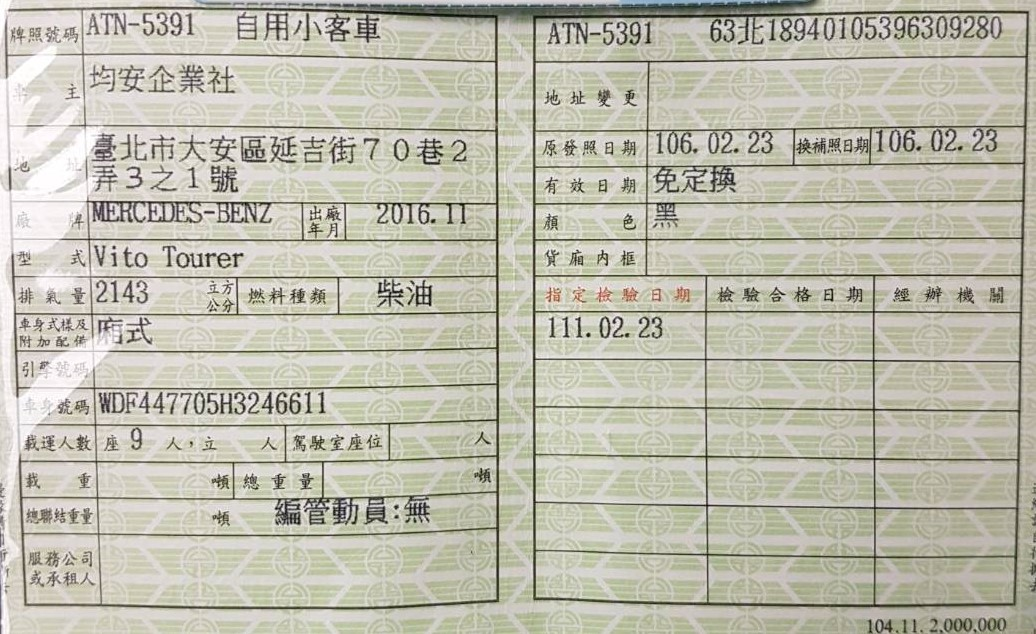 牌照號碼 ATN-5391 自用小客車
車主 均安企業社
地址 臺北市大安區延吉街７０巷２
弄３之１號
廠牌 MERCEDES-BENZ 出廠年月 2016.11
型式 Vito Tourer
排氣量 2143 立方公分 燃料種類 柴油
車身式樣及附加配備 廂式
引擎號碼
車身號碼 WDF447705H3246611
載運人數 座 9 人，立 人 駕駛室座位 人
載重 噸 總重量 噸
總聯結重量 噸 編管動員:無
服務公司
或承租人
ATN-5391 63北18940105396309280
地址變更
原發照日期 106.02.23 換補照日期 106.02.23
有效日期 免定換
顏色 黑
貨廂內框
指定檢驗日期 檢驗合格日期 經辦機關
111.02.23
104.11. 2,000,000